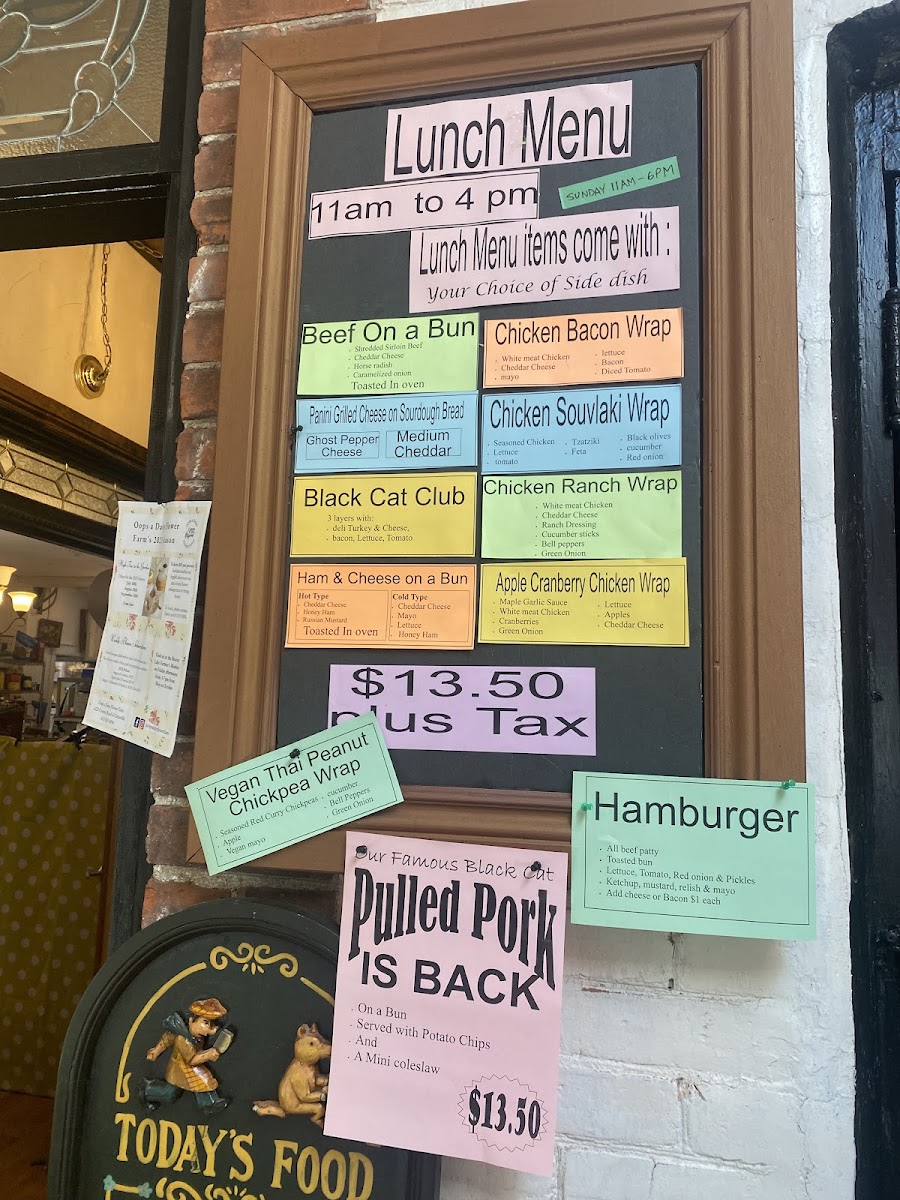 Lunch Menu
11am to 4 pm
SUNDAY 11AM - 6PM
Lunch Menu items come with :
Your Choice of Side dish
Beef On a Bun
Shredded Sirloin Beef
Cheddar Cheese
Horse radish
Caramelized onion
Toasted In oven
Chicken Bacon Wrap
White meat Chicken
Cheddar Cheese
mayo
lettuce
Bacon
Diced Tomato
Panini Grilled Cheese on Sourdough Bread
Ghost Pepper
Cheese
Medium
Cheddar
Chicken Souvlaki Wrap
Seasoned Chicken
Lettuce
tomato
Tzatziki
Feta
Black olives
cucumber
Red onion
Black Cat Club
3 layers with:
deli Turkey & Cheese,
bacon, Lettuce, Tomato
Chicken Ranch Wrap
White meat Chicken
Cheddar Cheese
Ranch Dressing
Cucumber sticks
Bell peppers
Green Onion
Ham & Cheese on a Bun
Hot Type
Cheddar Cheese
Honey Ham
Russian Mustard
Toasted In oven
Cold Type
Cheddar Cheese
Mayo
Lettuce
Honey Ham
Apple Cranberry Chicken Wrap
Maple Garlic Sauce
White meat Chicken
Cranberries
Green Onion
Lettuce
Apples
Cheddar Cheese
$13.50
plus Tax
Vegan Thai Peanut
Chickpea Wrap
Seasoned Red Curry Chickpeas
Apple
Vegan mayo
cucumber
Bell Peppers
Green Onion
Hamburger
All beef patty
Toasted bun
Lettuce, Tomato, Red onion & Pickles
Ketchup, mustard, relish & mayo
Add cheese or Bacon $1 each
Our Famous Black Cat
Pulled Pork
IS BACK
On a Bun
Served with Potato Chips
And
A Mini coleslaw
$13.50
Oops a Daisy
Farm's
TODAY'S FOOD